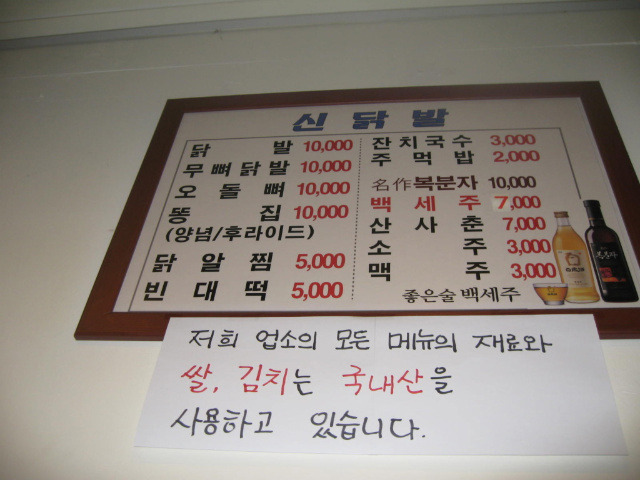 신 닭 발
닭 발 10,000
무뼈닭발 10,000
오 돌 뼈 10,000
똥 집 10,000
(양념/후라이드)
닭 알 찜 5,000
빈 대 떡 5,000
잔치국수 3,000
주 먹 밥 2,000
名作복분자 10,000
백 세 주 7,000
산 사 춘 7,000
소 주 3,000
맥 주 3,000
좋은술 백세주
저희 업소의 모든 메뉴의 재료와
쌀, 김치는 국내산을
사용하고 있습니다.